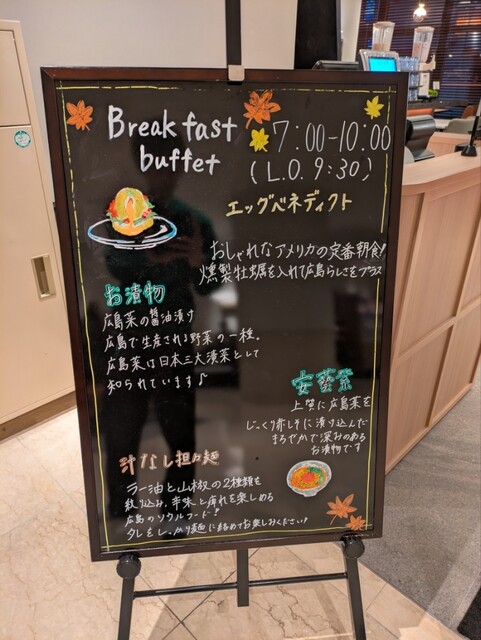 Breakfast
buffet
7:00-10:00
(L.O. 9:30)
エッグベネディクト
おしゃれなアメリカの定番朝食!
燻製牡蠣を入れて広島らしさをプラス
お漬物
広島菜の醤油漬け
広島で生産される野菜の一種。
広島菜は日本三大漬菜として
知られています♪
安藝紫
上質に広島菜を
じっくり赤しそに漬け込んだ
まろやかで深みのある
お漬物です
汁なし担々麺
ラー油と山椒の2種類を
絞り込み、辛味と痺れを楽しめる
広島のソウルフード!
タレをしっかり麺に絡めてお楽しみください!